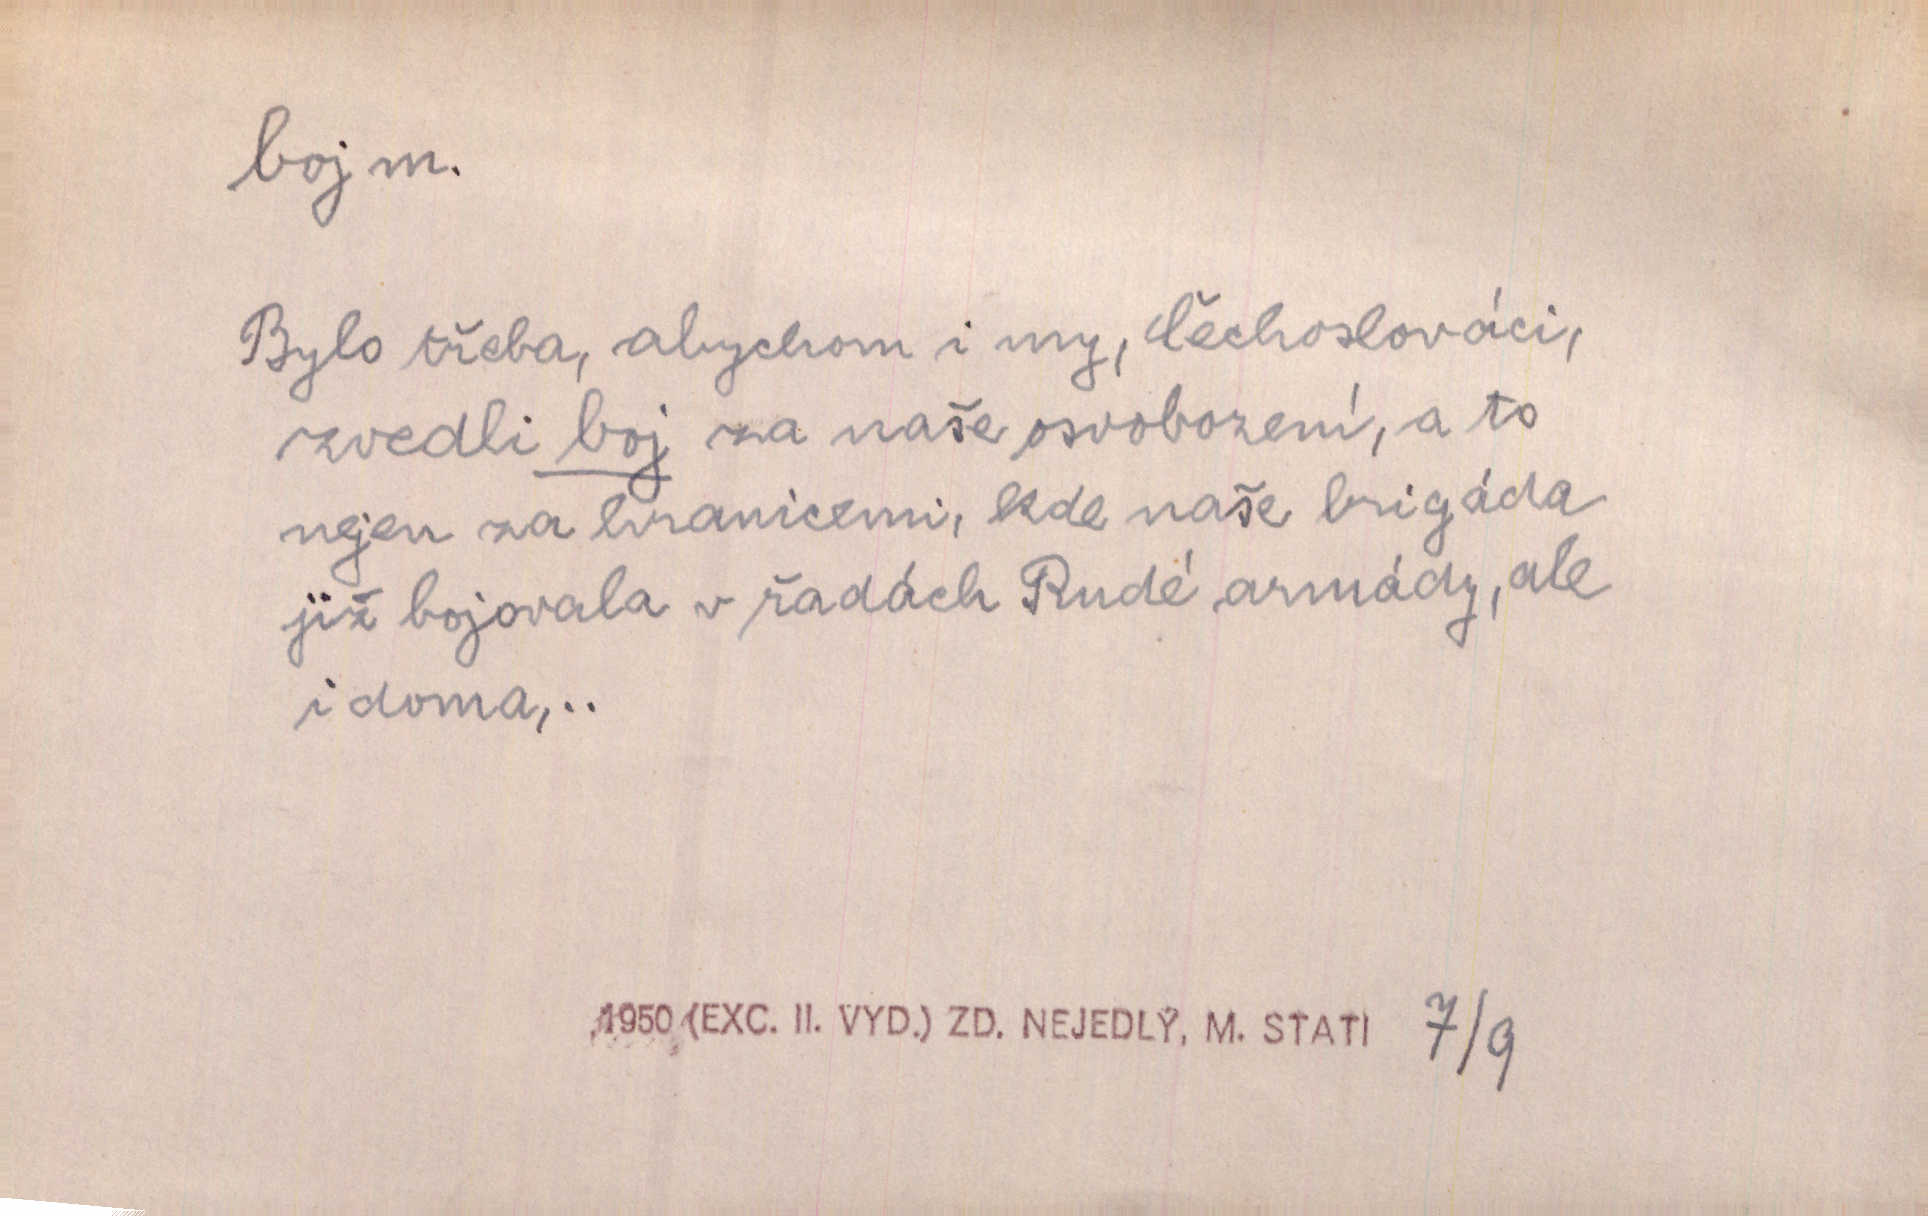 boj m.
Bylo třeba, abychom i my, Čechoslováci,
zvedli boj za naše osvobození, a to
nejen za hranicemi, kde naše brigáda
již bojovala v řadách Rudé armády, ale
i doma,..
1950 (EXC. II. VYD.) ZD. NEJEDLÝ, M. STATI 7/9